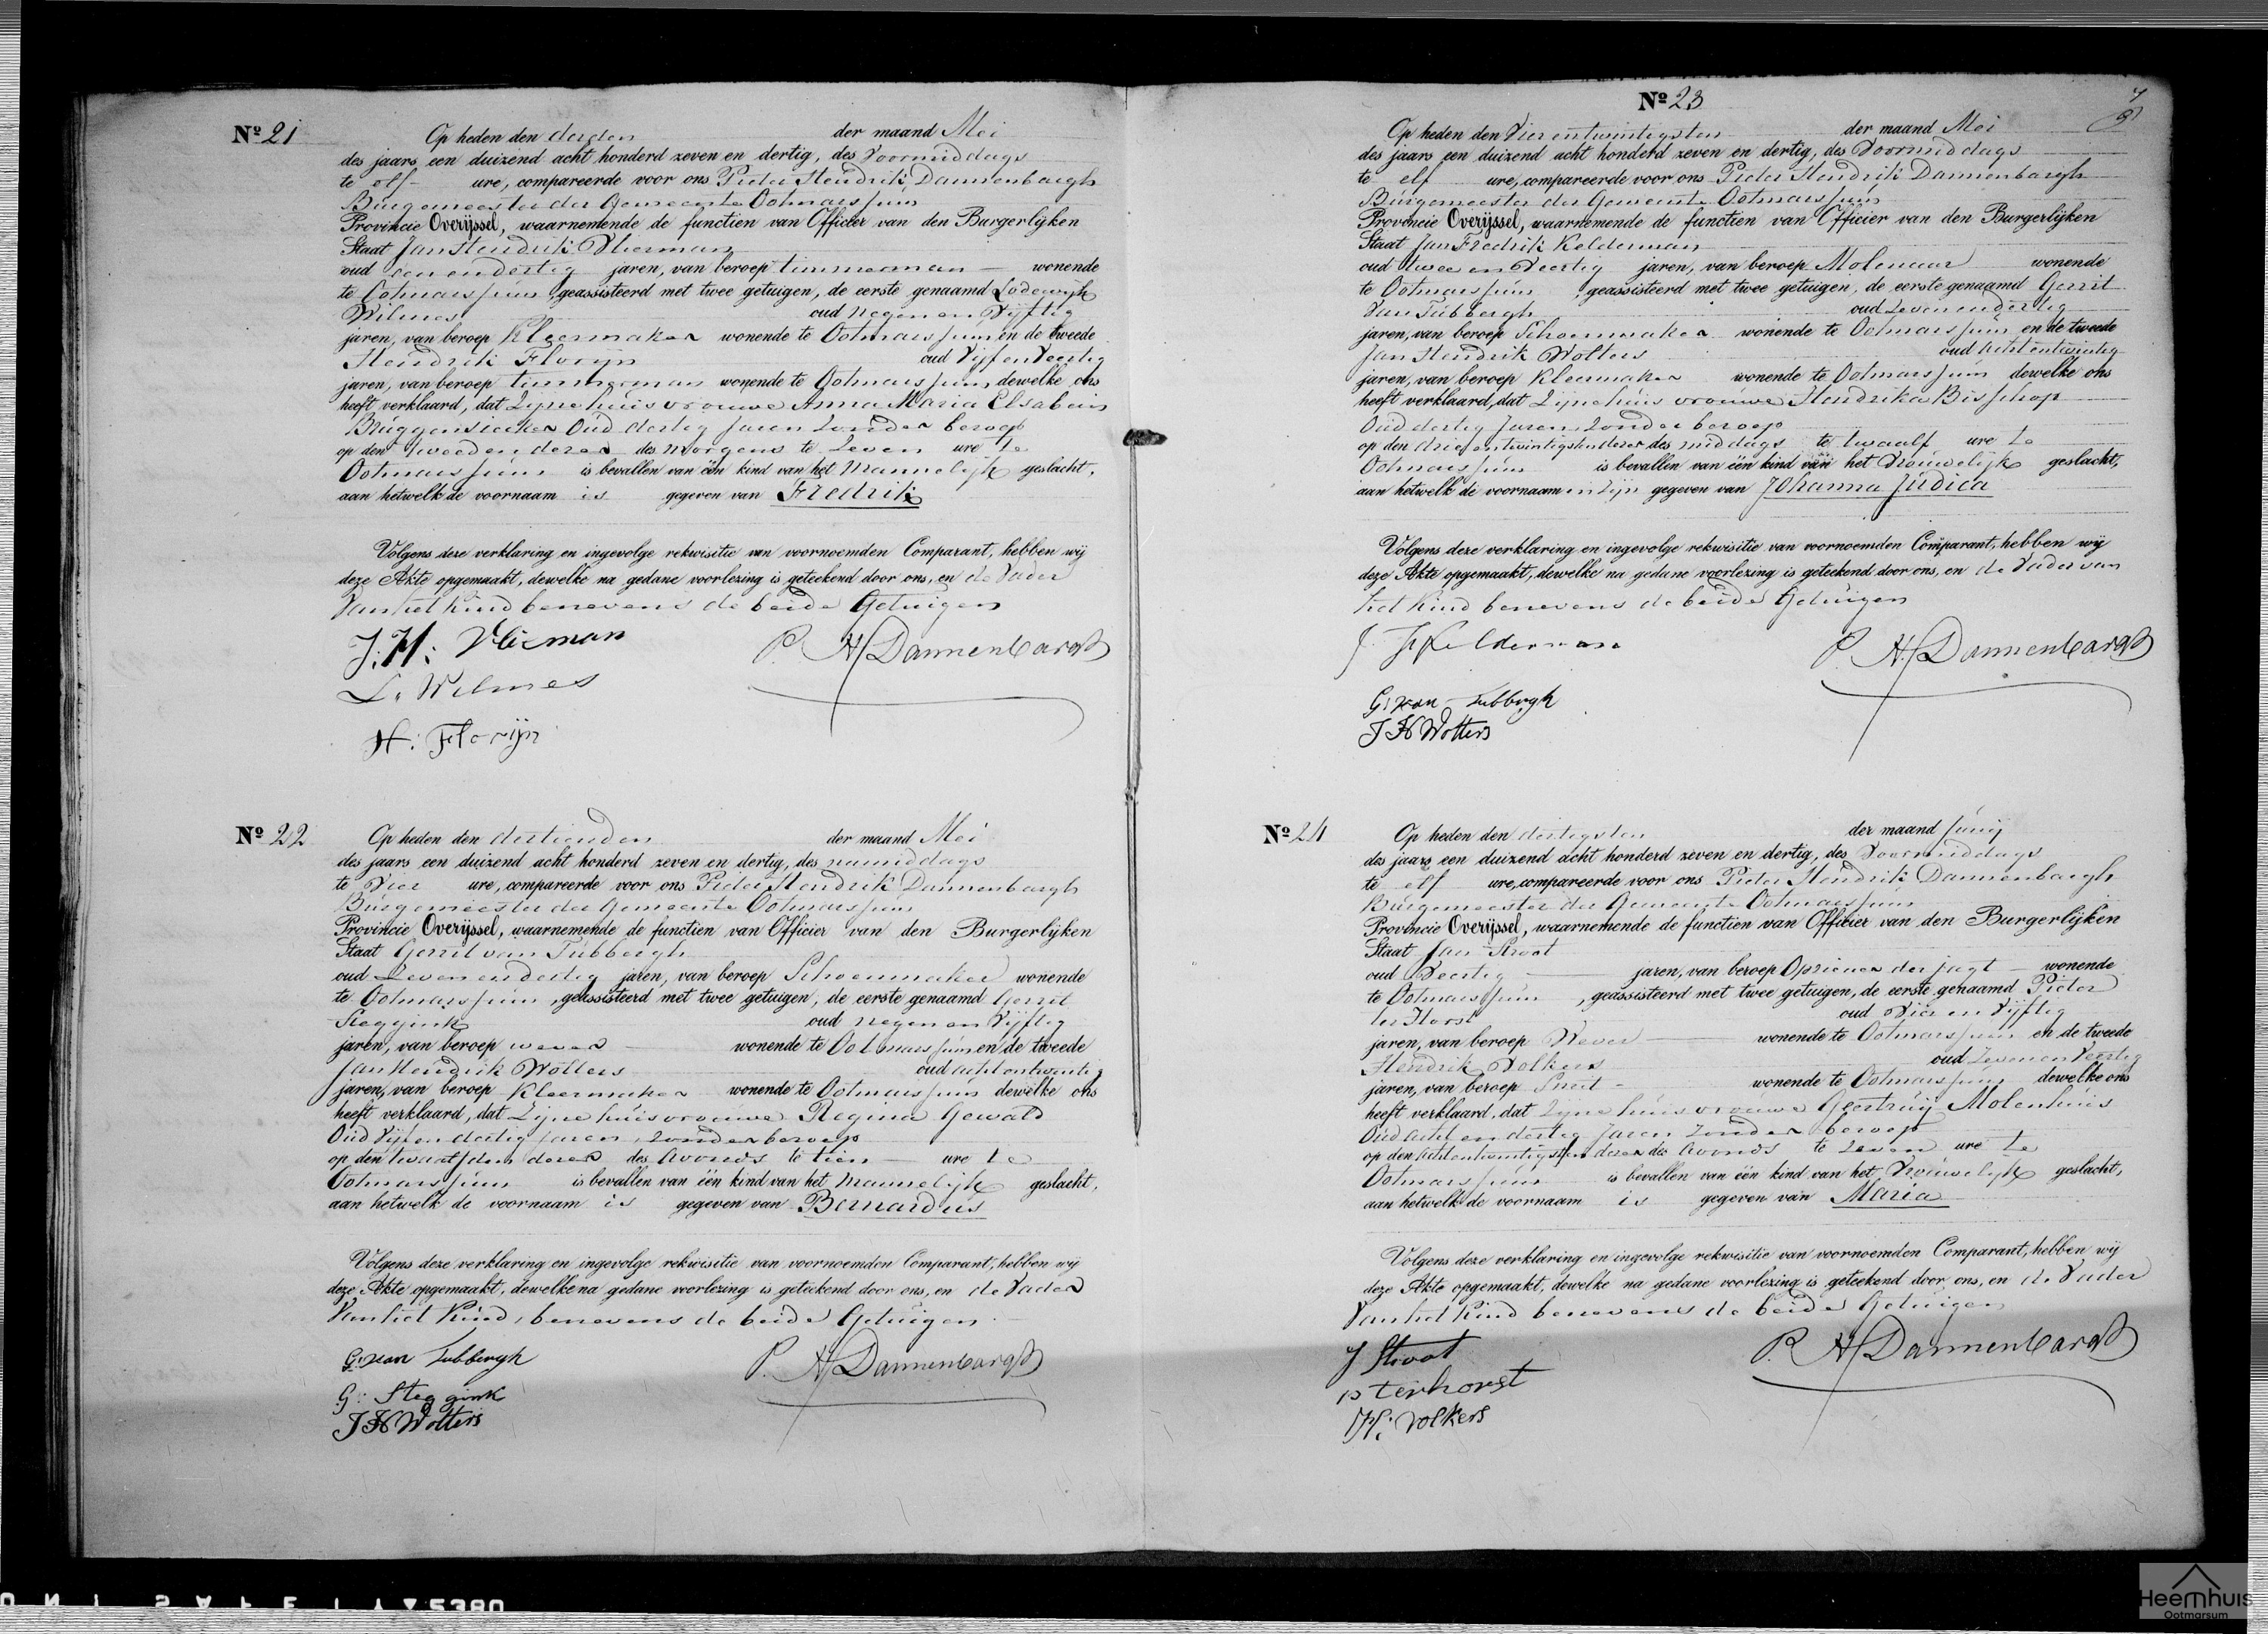 Nº 21
Op heden den derden der maand Mei
des jaars een duizend acht honderd zeven en dertig, des Voormiddags
te elf ure, compareerde voor ons Pieter Hendrik Dannenbargh
Burgemeester der Gemeente Ootmarssum
Provincie Overijssel, waarnemende de functien van Officier van den Burgerlijken
Staat Jan Hendrik Vlierman
oud een en dertig jaren, van beroep timmerman wonende
te Ootmarssum, geassisteerd met twee getuigen, de eerste genaamd Lodewijk
Wilmes oud negen en Vijftig
jaren, van beroep Kleermaker wonende te Ootmarssum en de tweede
Hendrik Florijn oud Vijf en Veertig
jaren, van beroep timmerman wonende te Ootmarssum dewelke ons
heeft verklaard, dat Zijne huisvrouwe Anna Maria Elsabein
Oud dertig Jaren Zonder beroep
op den tweeden dezer des morgens te Zeven ure te
Ootmarssum is bevallen van één kind van het Mannelijk geslacht,
aan hetwelk de voornaam is gegeven van Fredrik
Volgens deze verklaring en ingevolge rekwisitie van voornoemden Comparant, hebben wij
deze Akte opgemaakt, dewelke na gedane voorlezing is geteekend door ons, en de Vader
Van het Kind benevens de beide Getuigen
J: H: Vlierman P. H Dannenbargh
L. Wilmes
H: Florijn
Nº 22
Op heden den dertienden der maand Mei
des jaars een duizend acht honderd zeven en dertig, des namiddags
te Vier ure, compareerde voor ons Pieter Hendrik Dannenbargh
Burgemeester der Gemeente Ootmarssum
Provincie Overijssel, waarnemende de functien van Officier van den Burgerlijken
Staat Gerrit van Tubbergh
oud Zeven en dertig jaren, van beroep Schoenmaker wonende
te Ootmarssum, geassisteerd met twee getuigen, de eerste genaamd Gerrit
Steggink oud negen en Vijftig
jaren, van beroep wever wonende te Ootmarssum en de tweede
Jan Hendrik Wolters oud acht en twintig
jaren, van beroep Kleermaker wonende te Ootmarssum dewelke ons
heeft verklaard, dat Zijne huisvrouwe Regina Gewald
Oud Vijf en dertig Jaren, Zonder beroep
op den twaalfden dezer des Avonds te tien ure te
Ootmarssum is bevallen van één kind van het Mannelijk geslacht,
aan hetwelk de voornaam is gegeven van Bernardus
Volgens deze verklaring en ingevolge rekwisitie van voornoemden Comparant, hebben wij
deze Akte opgemaakt, dewelke na gedane voorlezing is geteekend door ons, en de Vader
Van het Kind, benevens de beide Getuigen
G: van Tubbergh P. H Dannenbargh
G: Steggink
J H Wolters
Nº 23
Op heden den Vier en twintigsten der maand Mei
des jaars een duizend acht honderd zeven en dertig, des Voormiddags
te elf ure, compareerde voor ons Pieter Hendrik Dannenbargh
Burgemeester der Gemeente Ootmarssum
Provincie Overijssel, waarnemende de functien van Officier van den Burgerlijken
Staat Jan Fredrik Kelderman
oud twee en Veertig jaren, van beroep Molenaar wonende
te Ootmarssum, geassisteerd met twee getuigen, de eerste genaamd Gerrit
Van Tubbergh oud Zeven en dertig
jaren, van beroep Schoenmaker wonende te Ootmarssum en de tweede
Jan Hendrik Wolters oud Acht en twintig
jaren, van beroep Kleermaker wonende te Ootmarssum dewelke ons
heeft verklaard, dat Zijne huisvrouwe Hendrika Bisschop
Oud dertig Jaren, Zonder beroep
op den drie en twintigsten dezer des middags te twaalf ure te
Ootmarssum is bevallen van één kind van het Vrouwelijk geslacht,
aan hetwelk de voornaamen zijn gegeven van Johanna Judica
Volgens deze verklaring en ingevolge rekwisitie van voornoemden Comparant, hebben wij
deze Akte opgemaakt, dewelke na gedane voorlezing is geteekend door ons, en de Vader van
het Kind benevens de beide Getuigen
J. F Kelderman P. H. Dannenbargh
G: van Tubbergh
J H Wolters
Nº 24
Op heden den dertigsten der maand Junij
des jaars een duizend acht honderd zeven en dertig, des Voormiddags
te elf ure, compareerde voor ons Pieter Hendrik Dannenbargh
Burgemeester der Gemeente Ootmarssum
Provincie Overijssel, waarnemende de functien van Officier van den Burgerlijken
Staat Jan Stroot
oud Veertig jaren, van beroep Opziener der jagt wonende
te Ootmarssum, geassisteerd met twee getuigen, de eerste genaamd Pieter
ter Horst oud Vier en Vijftig
jaren, van beroep Wever wonende te Ootmarssum en de tweede
Hendrik Volkers oud Zeven en Veertig
jaren, van beroep Smit wonende te Ootmarssum dewelke ons
heeft verklaard, dat Zijne huisvrouwe Geertruij Molenhuis
Oud Acht en dertig Jaren Zonder beroep
op den Acht en twintigsten dezer des Avonds te Zeven ure te
Ootmarssum is bevallen van één kind van het Vrouwelijk geslacht,
aan hetwelk de voornaam is gegeven van Maria
Volgens deze verklaring en ingevolge rekwisitie van voornoemden Comparant, hebben wij
deze Akte opgemaakt, dewelke na gedane voorlezing is geteekend door ons, en de Vader
Van het Kind benevens de beide Getuigen
J Stroot P. H Dannenbargh
p terhorst
H: Volkers
5380
Heemhuis
Ootmarsum